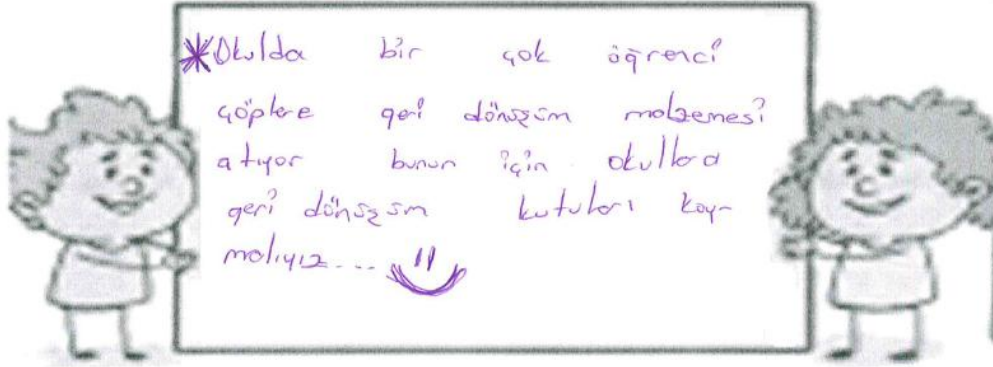 *Okulda bir çok öğrenci
çöplere geri dönüşüm malzemesi
atıyor bunun için okullara
geri dönüşüm kutuları koy-
malıyız....